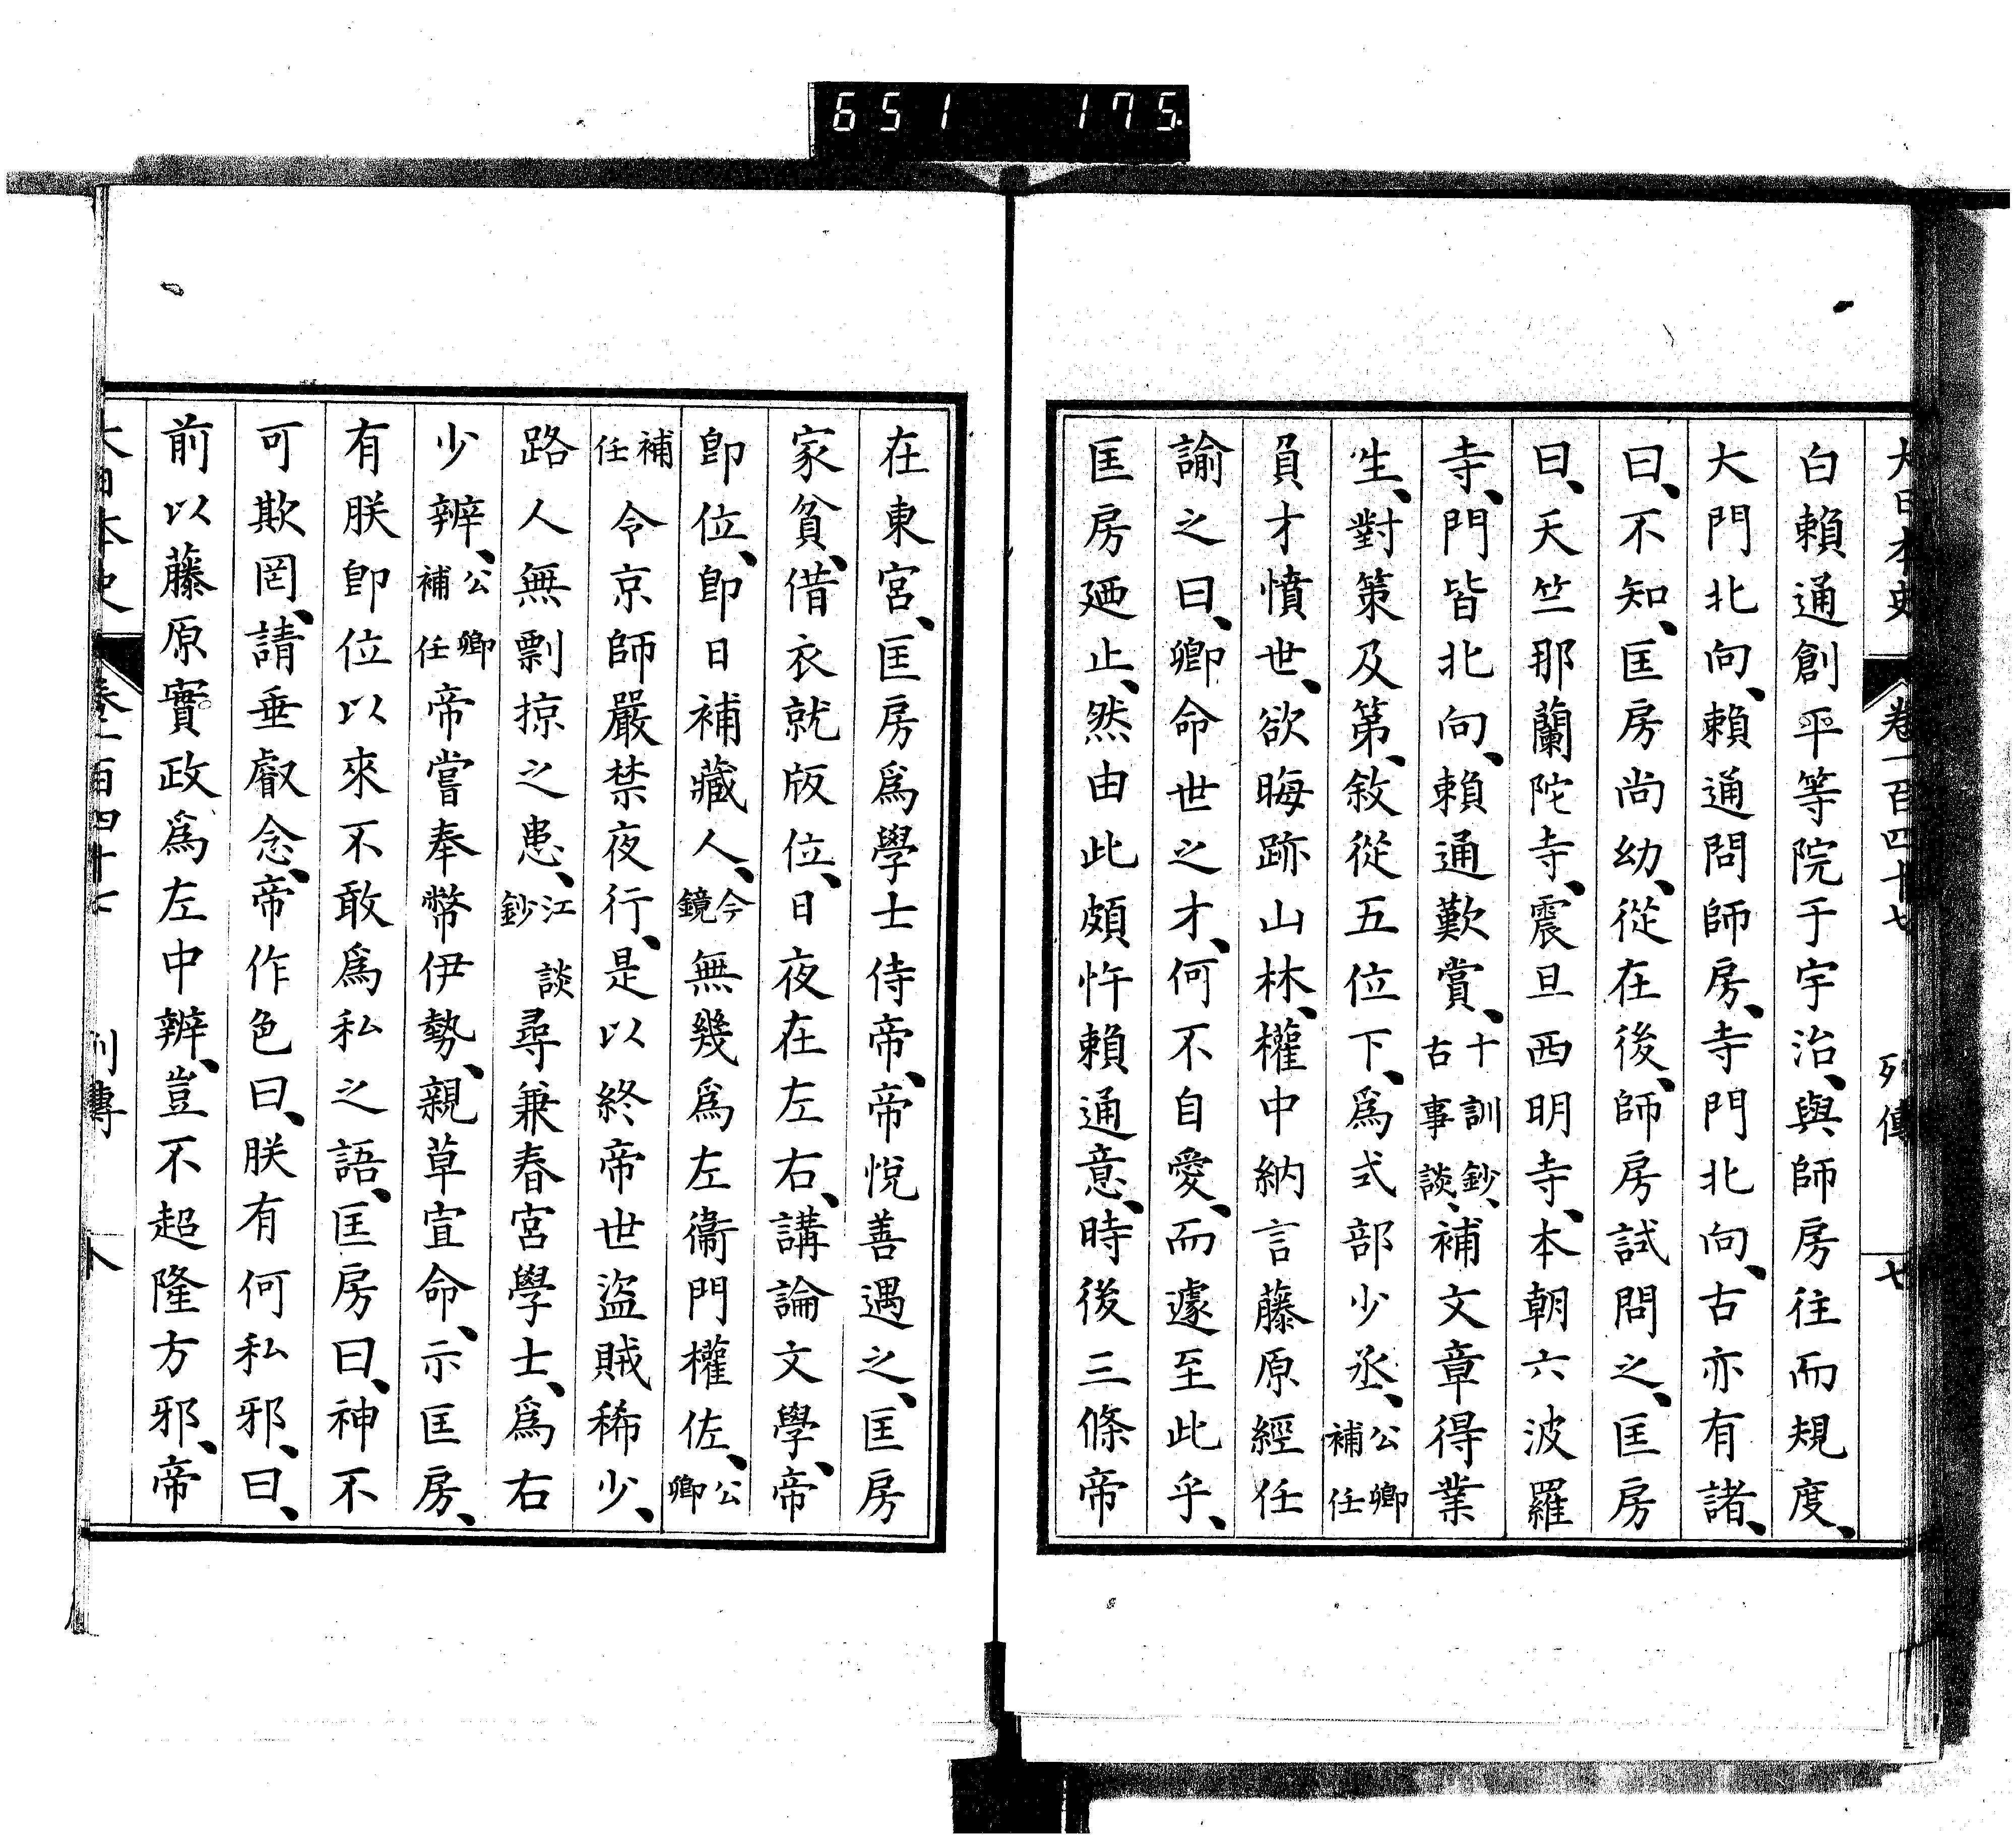 651 175
大日本史 卷一百四十七 列傳 七
白賴通創平等院于宇治、與師房往而規度、
大門北向、賴通問師房、寺門北向、古亦有諸、
曰、不知、匡房尚幼、從在後、師房試問之、匡房
曰、天竺那蘭陀寺、震旦西明寺、本朝六波羅
寺、門皆北向、賴通歎賞、十訓鈔、古事談、補文章得業
生、對策及第、敘從五位下、爲式部少丞、公卿補任
負才憤世、欲晦跡山林、權中納言藤原經任
諭之曰、卿命世之才、何不自愛、而遽至此乎、
匡房廼止、然由此頗忤賴通意、時後三條帝
在東宮、匡房爲學士侍帝、帝悅善遇之、匡房
家貧、借衣就版位、日夜在左右、講論文學、帝
卽位、卽日補藏人、今鏡無幾爲左衞門權佐、公卿
補任令京師嚴禁夜行、是以終帝世盜賊稀少、
路人無剽掠之患、江談鈔尋兼春宮學士、爲右
少辨、公卿補任帝嘗奉幣伊勢、親草宣命、示匡房、
有朕卽位以來不敢爲私之語、匡房曰、神不
可欺罔、請垂叡念、帝作色曰、朕有何私邪、曰、
前以藤原實政爲左中辨、豈不超隆方邪、帝
大日本史 卷一百四十七 列傳 八